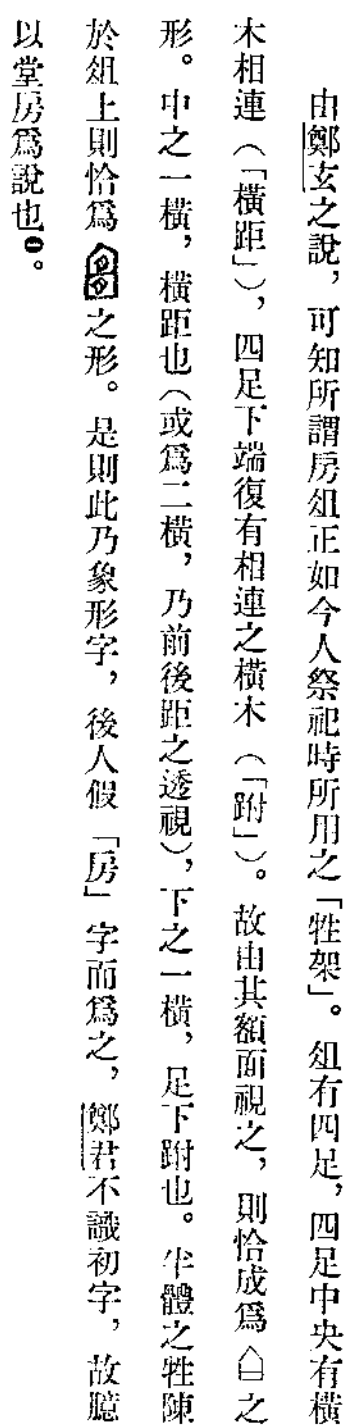 由鄭玄之說，可知所謂房俎正如今人祭祀時所用之「牲架」。俎有四足，四足中央有橫
木相連（「橫距」），四足下端復有相連之橫木（「跗」）。故由其額面視之，則恰成爲之
形。中之一橫，橫距也（或爲二橫，乃前後距之透視），下之一橫，足下跗也。半體之牲陳
於俎上則恰爲之形。是則此乃象形字，後人假「房」字而爲之，鄭君不識初字，故臆
以堂房爲說也⊖。